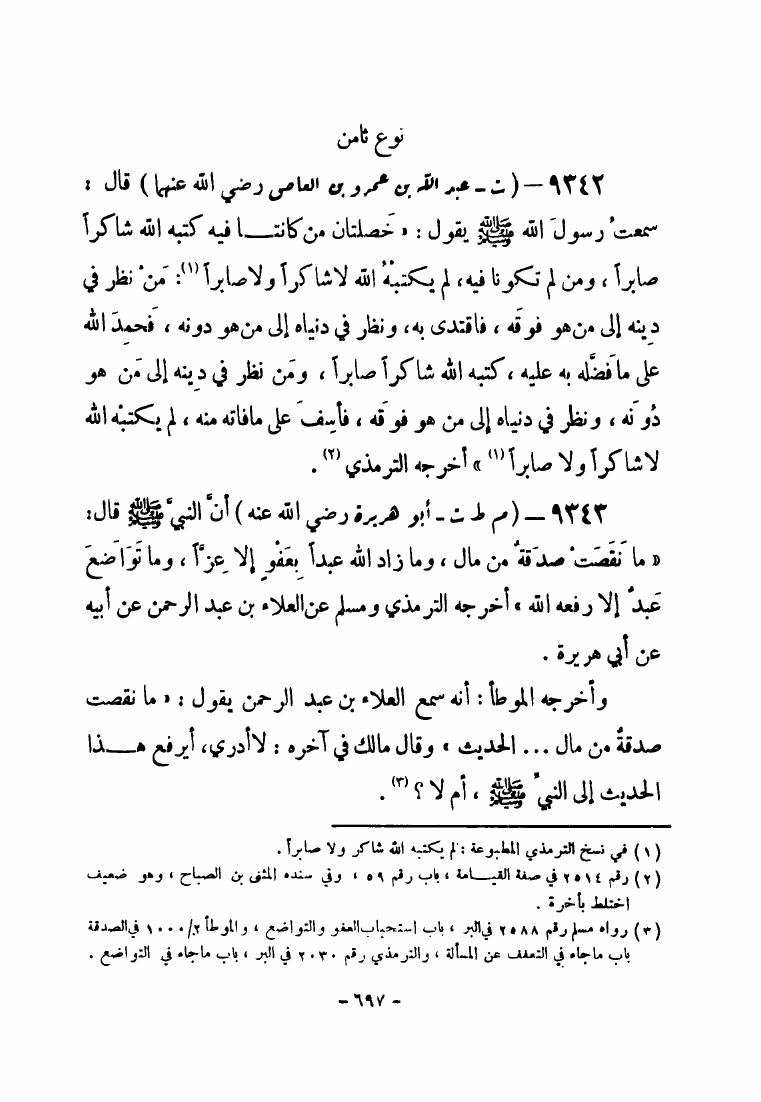 نوع ثامن
٩٣٤٢ – ( ت - عبد الله بن عمرو بن العاص رضي الله عنهما ) قال :
سمعتُ رسولَ الله ﷺ يقول : « خَصلتان من كانتـــا فيه كتبه الله شاكراً
صابراً ، ومن لم تكونا فيه، لم يكتبْهُ الله لا شاكراً ولا صابراً (١): مَنْ نظر في
دِينه إلى من هو فوقَه ، فاقتدى به، ونظر في دنياه إلى من هو دونه ، فحمِدَ الله
على ما فَضَّله به عليه ، كتبه الله شاكراً صابراً ، ومَن نظر في دِينه إلى مَن هو
دُونَه ، ونظر في دنياه إلى من هو فوقَه ، فأسِفَ على ما فاته منه ، لم يكتبْه الله
لا شاكراً ولا صابراً (١) » أخرجه الترمذي (٢) .
٩٣٤٣ – ( م ط ت - أبو هريرة رضي الله عنه ) أنَّ النبيَّ ﷺ قال:
« ما نَقَصَتْ صدَقةٌ من مال ، وما زاد الله عبداً بِعَفْوٍ إِلا عِزَّاً ، وما تَوَاَضَعَ
عَبدٌ إِلا رفعه الله » أخرجه الترمذي ومسلم عن العلاء بن عبد الرحمن عن أبيه
عن أبي هريرة .
وأخرجه الموطأ : أنه سمع العلاء بن عبد الرحمن يقول : « ما نقصت
صدقةٌ من مال ... الحديث » وقال مالك في آخره : لا أدري، أيرفع هـــذا
الحديث إلى النبيِّ ﷺ ، أم لا ؟ (٣) .
(١) في نسخ الترمذي المطبوعة : لم يكتبه الله شاكر ولا صابراً .
(٢) رقم ٢٥١٤ في صفة القيـــامة ، باب رقم ٥٩ ، وفي سنده المثنى بن الصباح ، وهو ضعيف
اختلط بأخرة .
(٣) رواه مسلم رقم ٢٥٨٨ في البر ، باب استحباب العفو والتواضع ، والموطأ ٢/١٠٠٠ في الصدقة
باب ما جاء في التعفف عن المسألة ، والترمذي رقم ٢٠٣٠ في البر ، باب ما جاء في التواضع .
- ٦٩٧ -